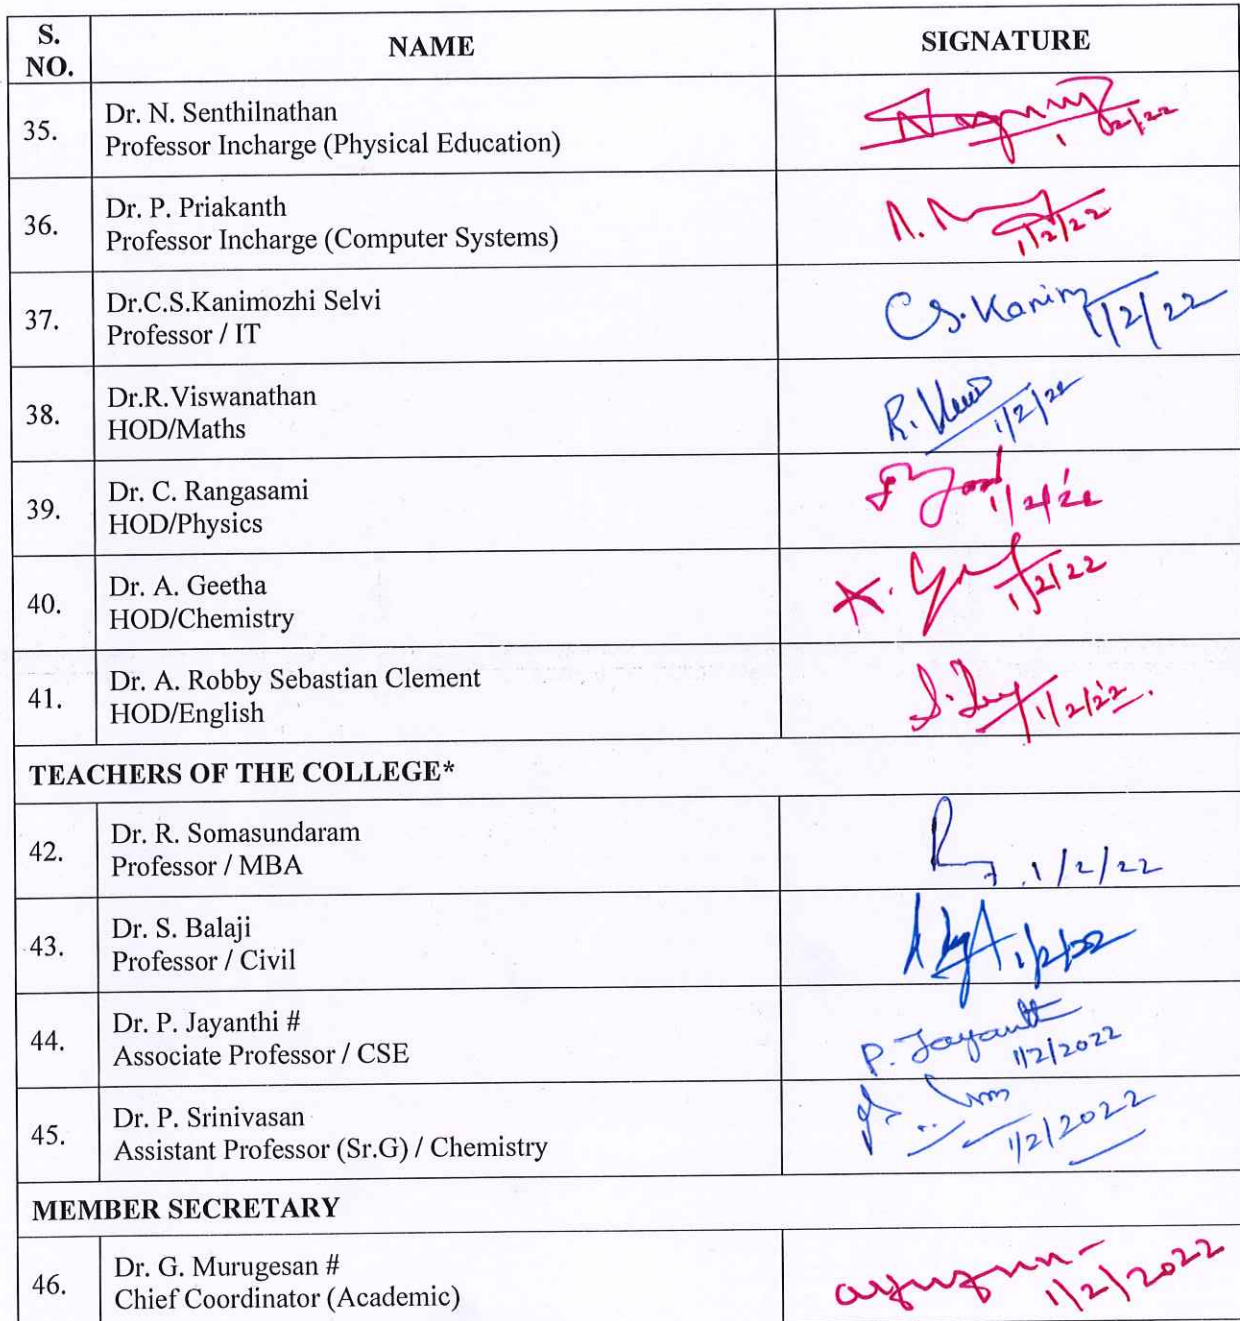 S.
NO.
NAME
SIGNATURE
35.
Dr. N. Senthilnathan
Professor Incharge (Physical Education)
1/2/22
36.
Dr. P. Priakanth
Professor Incharge (Computer Systems)
1/2/22
37.
Dr.C.S.Kanimozhi Selvi
Professor / IT
1/2/22
38.
Dr.R.Viswanathan
HOD/Maths
R. 1/2/22
39.
Dr. C. Rangasami
HOD/Physics
1/2/22
40.
Dr. A. Geetha
HOD/Chemistry
1/2/22
41.
Dr. A. Robby Sebastian Clement
HOD/English
1/2/22.
TEACHERS OF THE COLLEGE*
42.
Dr. R. Somasundaram
Professor / MBA
1/2/22
43.
Dr. S. Balaji
Professor / Civil
1/2/22
44.
Dr. P. Jayanthi #
Associate Professor / CSE
P. Jayanthi
1/2/2022
45.
Dr. P. Srinivasan
Assistant Professor (Sr.G) / Chemistry
1/2/2022
MEMBER SECRETARY
46.
Dr. G. Murugesan #
Chief Coordinator (Academic)
1/2/2022